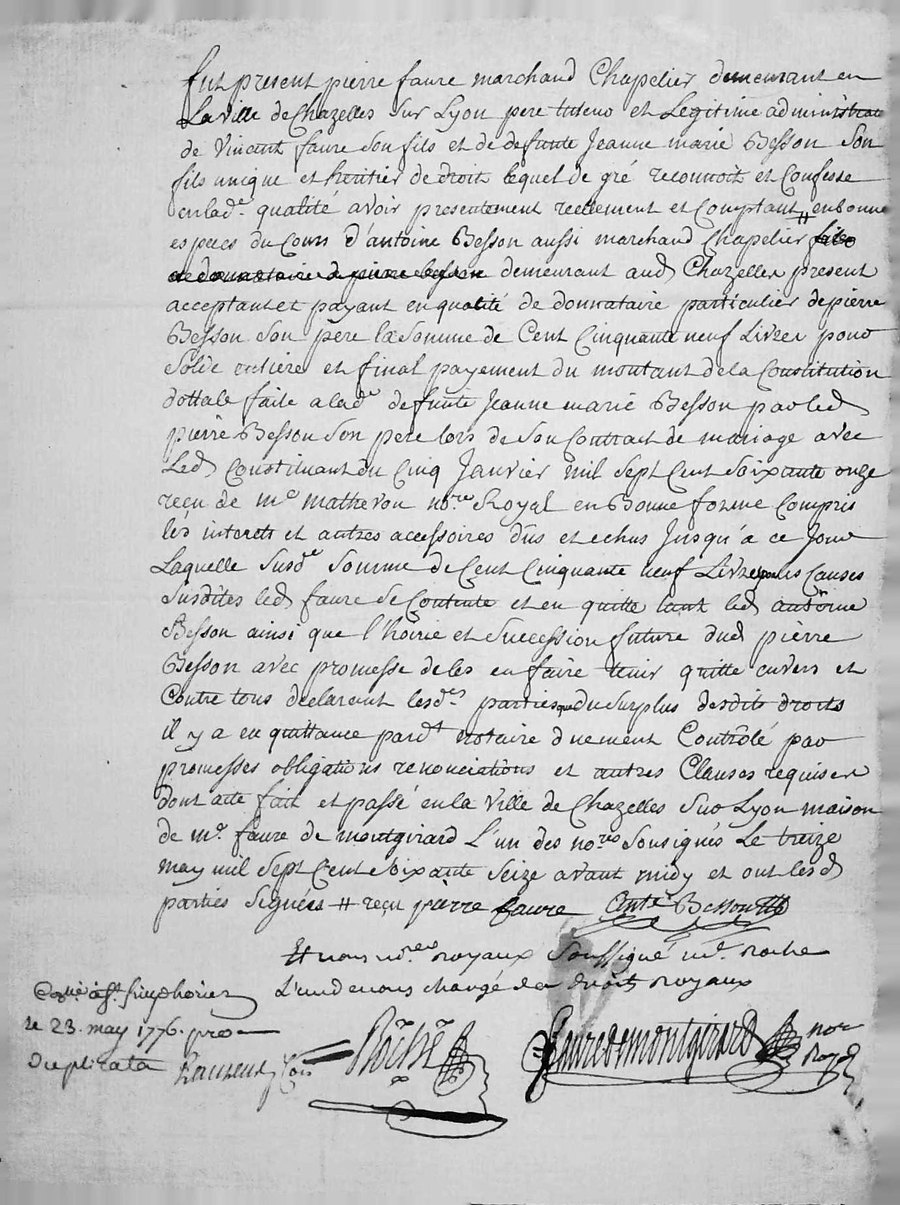 fut present pierre faure marchand Chapelier demeurant en
La ville de Chazelles sur Lyon pere tuteur et Legitime administrat
de Vincant faure son fils et de defunte Jeanne marie Besson son
fils unique et heritier de droit lequel de gré reconnoit et Confesse
en lad.e qualité avoir presentement reellement et Comptant # en bonne
especes du Cours d'antoine Besson aussi marchand Chapelier fils
et donnataire de pierre besson demeurant aud Chazelles present
acceptant et payant en qualité de donnataire particulier de pierre
Besson son père la somme de Cent Cinquante neuf Livres pour
Solde entiere et final payement du montant de la Constitution
dottale faite a lad.e defunte Jeanne marie Besson par led
pierre Besson son pere lors de son Contract de mariage avec
Led Constituant du Cinq Janvier mil sept Cent soixante onze
reçu de m.e matheron no.re Royal en Bonne forme Compris
les interets et autres accessoires dus et echus Jusqu'à ce Jour
Laquelle susd.e somme de Cent Cinquante neuf Livres pour les Causes
susdites led faure se Contente et en quitte tant led antoine
Besson ainsi que l'hoirie et succession future dud pierre
Besson avec promesse de les en faire tenir quitte envers et
Contre tous declarant lesd.es parties que du surplus desdits droits
il y a en quittance pard.t notaire duement Contrôlé par
promesses obligations renonciations et autres Clauses requises
dont acte fait et passé en la ville de Chazelles sur Lyon maison
de m.e faure de montgirard L'un des no.res sousignés Le treize
may mil sept Cent soixante seize avant midy et ont lesd
parties signées # reçu pierre faure Ant.e Besson
Et nous no.res royaux soussigné m.e Roche
L'un de nous chargé des droits royaux
Con.lé à St. simphorien
le 23. may 1776. pro
duplicata
Roche
fauredemontgirard nore
Royal